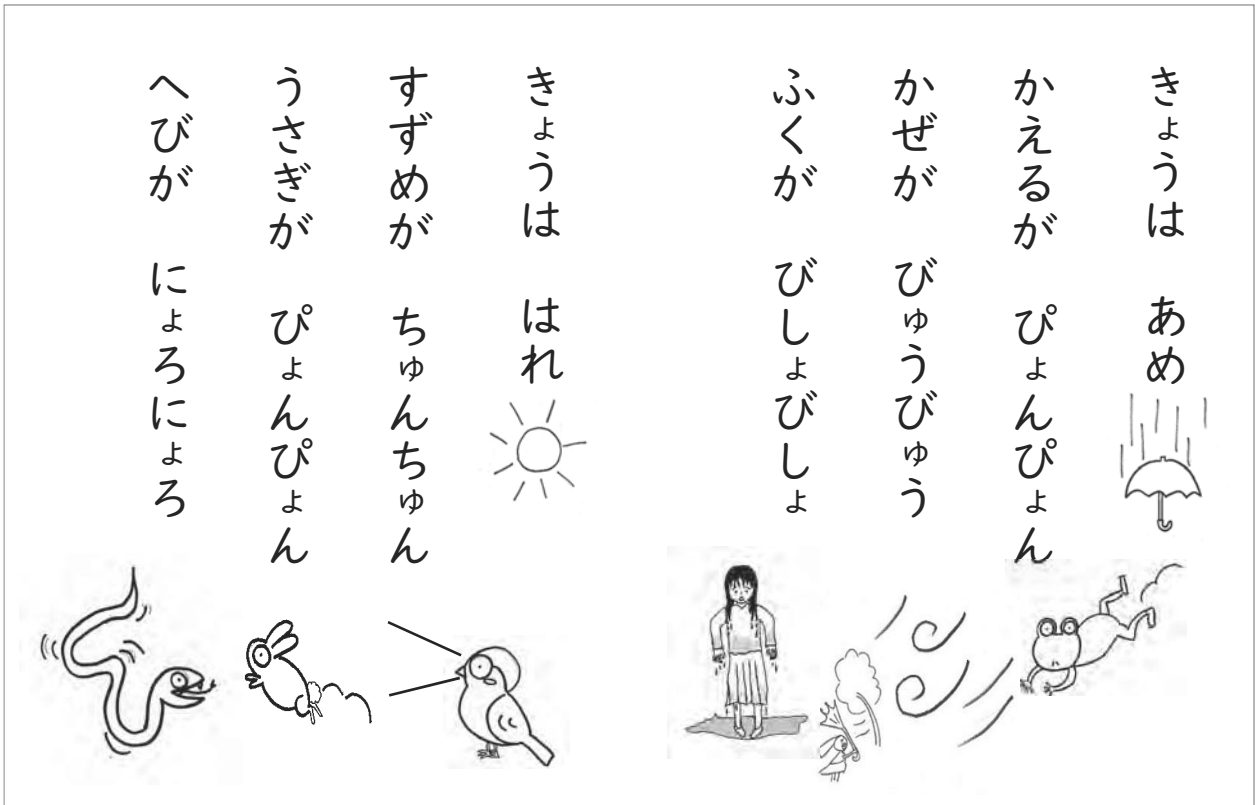 きょうは　あめ
かえるが　ぴょんぴょん
かぜが　びゅうびゅう
ふくが　びしょびしょ
きょうは　はれ
すずめが　ちゅんちゅん
うさぎが　ぴょんぴょん
へびが　にょろにょろ